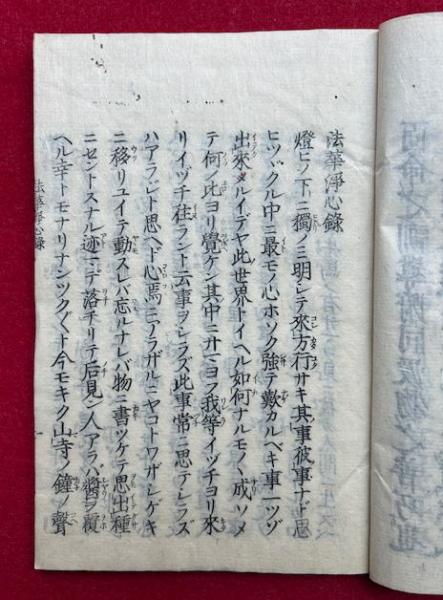 法華淨心録
燈ヒノ下ニ獨ノミ明シテ來方行サキ其事彼事ナド思
ヒツヾクル中ニ最モノ心ホソク強テ歎カルベキ事一ツゾ
出來タルイデヤ此世界トイヘル如何ナルモノヽ成ソメ
テ何ノ比ヨリ覺ケン其中ニサマヨフ我等イヅチヨリ來
リイヅチ往ラント云事ヲシラズ此事常ニ思テシラズ
ハアラジト思ヘド心焉ニアラザルニヤコトワザシゲキ
ニ移リユイテ動スレバ忘ルナレバ物ニ書ツケテ思出種
ニセントスナル迹マデ落チリテ后見ン人アラバ醬ヲ覆
ヘル幸トモナリナンツクヾヽト今モキク山寺ノ鐘ノ聲
法華淨心録